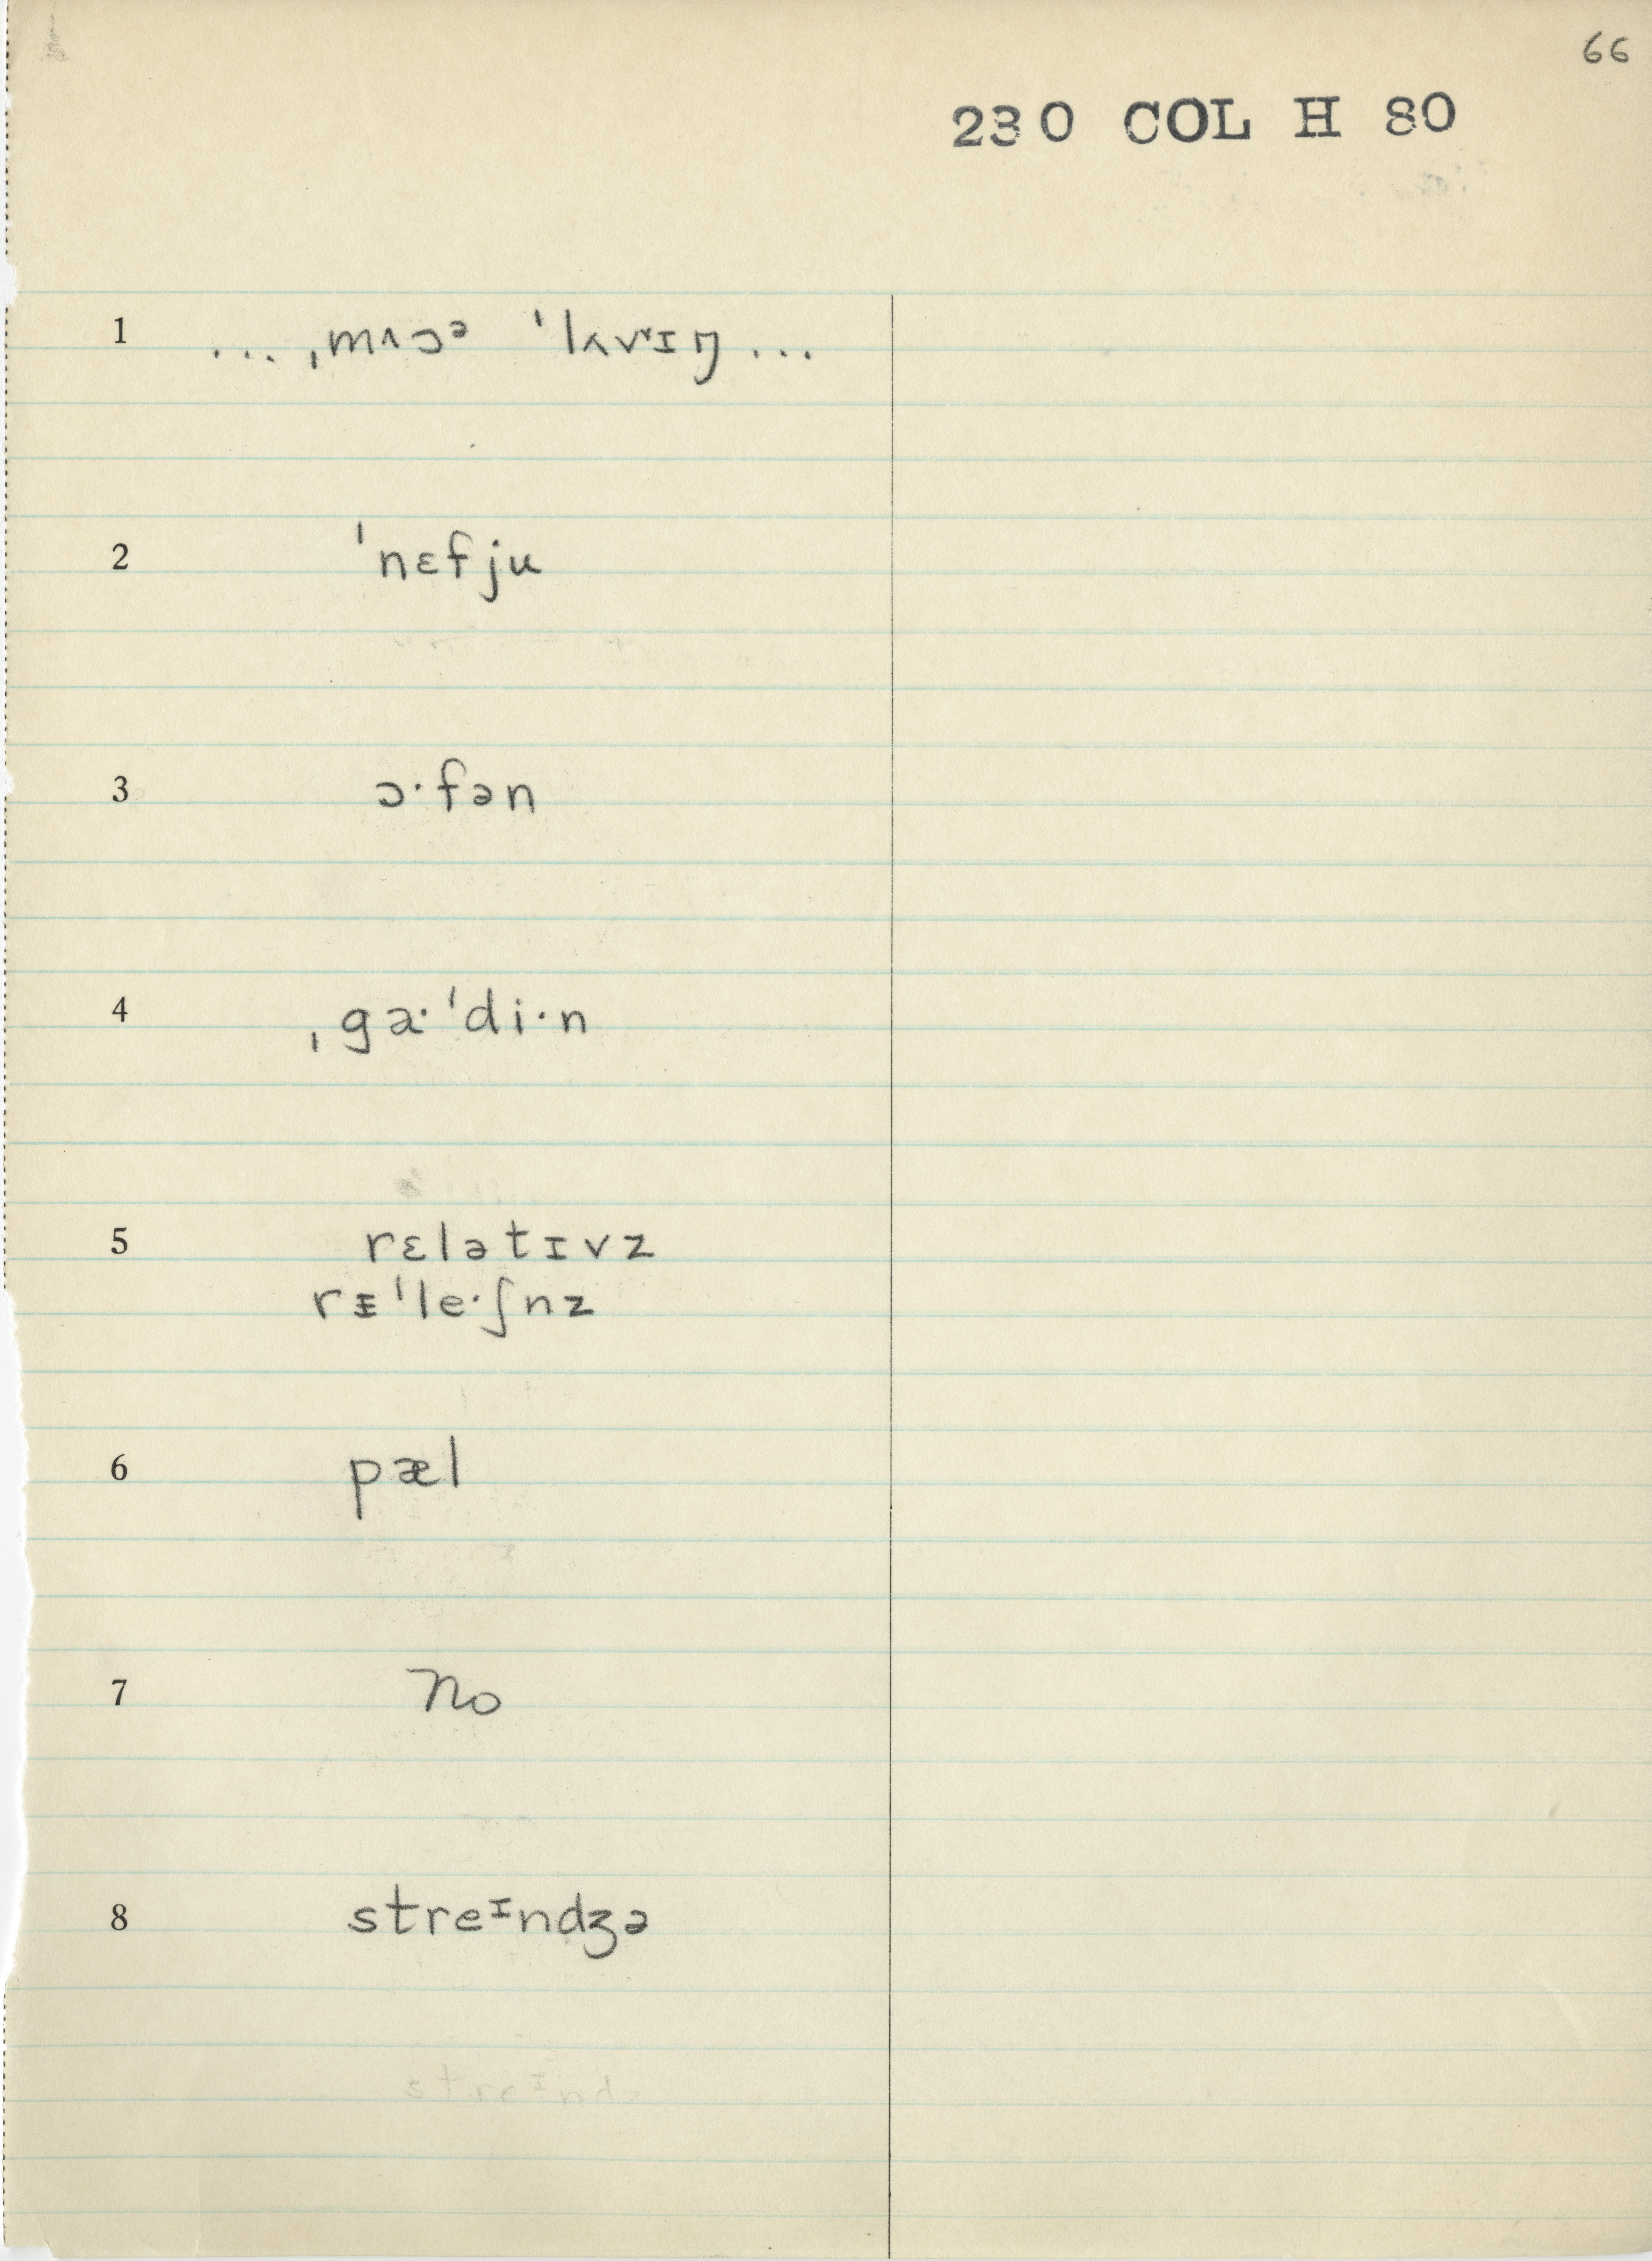 66
230 COL H 80
1 ... ˌmʌɔᵊ ˈlʌvᵛɪŋ ...
2 ˈnɛfju
3 ɔ·fən
4 ˌga·ˈdi·n
5 rɛlətɪvz
rᵻˈle·ʃnz
6 pæl
7 no
8 streᶦndʒə